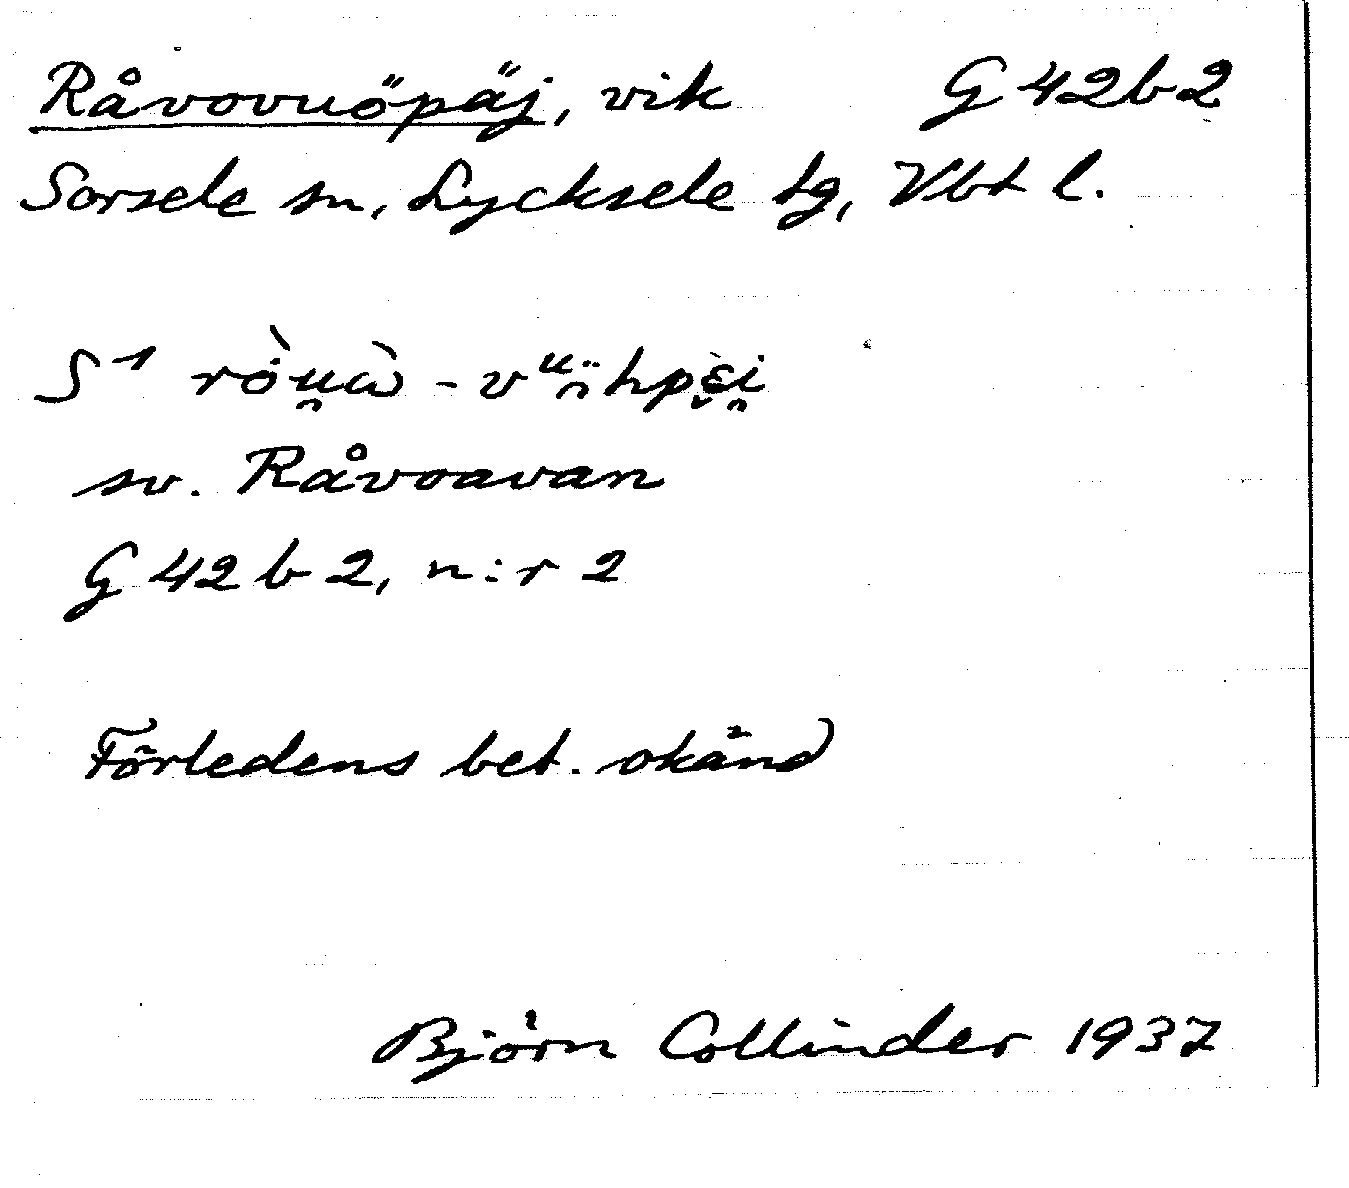 Råvovuöpäj, vik G 42b2
Sorsele sn, Lycksele tg, Vbt l.
S1
sv. Råvoavan
G 42 b 2, n:r 2
Förledens bet. okänd
Björn Collinder 1937